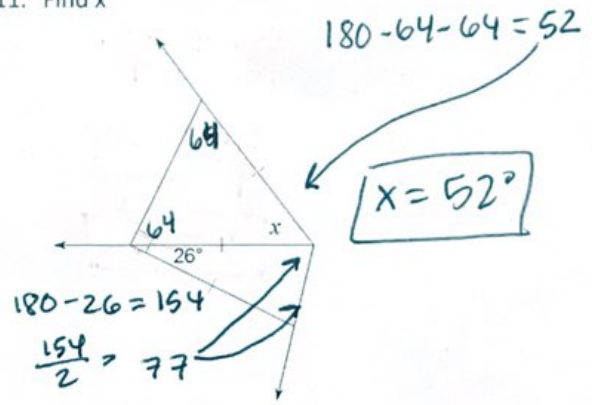 11. Find x
180-64-64=52
64
x = 52°
64
x
26°
180-26=154
154/2 = 77